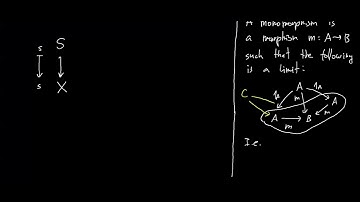 s S
s X
A monomorphism is
a morphism m: A → B
such that the following
is a limit:
A
C 1A m 1A
A → B A
m m
I.e.